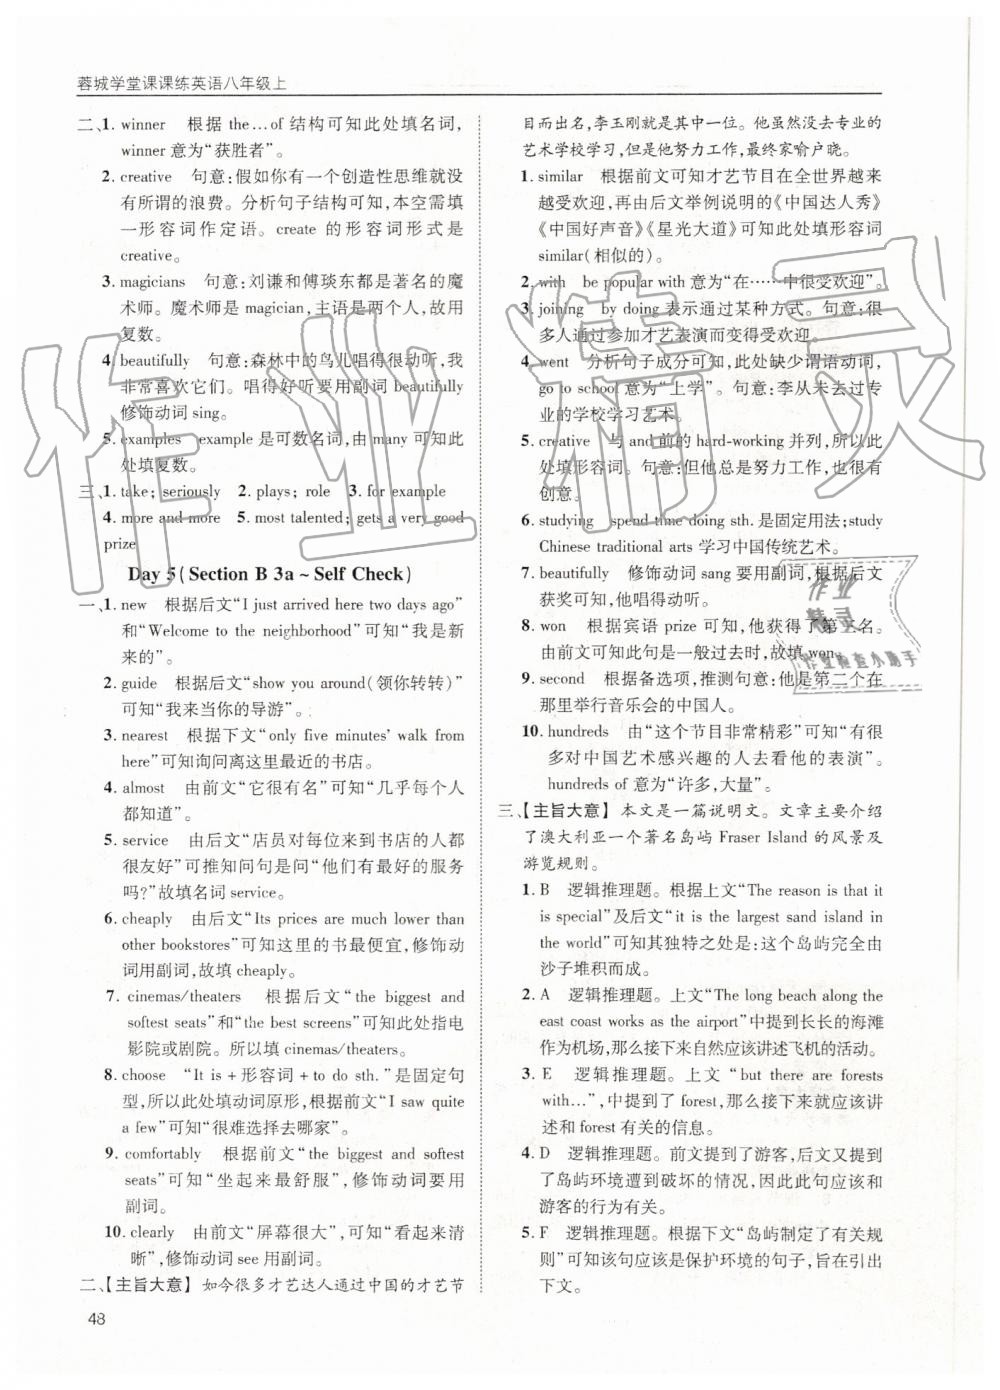 蓉城学堂课课练英语八年级上
二、1. winner 根据 the…of 结构可知此处填名词,
winner 意为“获胜者”。
2. creative 句意:假如你有一个创造性思维就没
有所谓的浪费。分析句子结构可知,本空需填
一形容词作定语。create 的形容词形式是
creative。
3. magicians 句意:刘谦和傅琰东都是著名的魔
术师。魔术师为 magician,主语是两个人,故用
复数。
4. beautifully 句意:森林中的鸟儿唱得很动听,我
非常喜欢它们。唱得好听要用副词 beautifully
修饰动词 sing。
5. examples example 是可数名词,由 many 可知此
处填复数。
三、1. take; seriously 2. plays; role 3. for example
4. more and more 5. most talented; gets a very good
prize
Day 5(Section B 3a ~ Self Check)
一、1. new 根据后文“I just arrived here two days ago”
和“Welcome to the neighborhood”可知“我是新
来的”。
2. guide 根据后文“show you around(领你转转)”
可知“我来当你的导游”。
3. nearest 根据下文“only five minutes’ walk from
here”可知询问离这里最近的书店。
4. almost 由前文“它很有名”可知“几乎每个人
都知道”。
5. service 由后文“店员对每位来到书店的人都
很友好”可推知问句是问“他们有最好的服务
吗?”故填名词 service。
6. cheaply 由后文“Its prices are much lower than
other bookstores”可知这里的书最便宜,修饰动
词用副词,故填 cheaply。
7. cinemas/theaters 根据后文“the biggest and
softest seats”和“the best screens”可知此处指电
影院或剧院。所以填 cinemas/theaters。
8. choose “It is + 形容词 + to do sth.”是固定句
型,所以此处填动词原形,根据前文“I saw quite
a few”可知“很难选择去哪家”。
9. comfortably 根据前文“the biggest and softest
seats”可知“坐起来最舒服”,修饰动词要用
副词。
10. clearly 由前文“屏幕很大”,可知“看起来清
晰”,修饰动词 see 用副词。
二、【主旨大意】 如今很多才艺达人通过中国的才艺节
48
目而出名,李玉刚就是其中一位。他虽然没去专业的
艺术学校学习,但是他努力工作,最终家喻户晓。
1. similar 根据前文可知才艺节目在全世界越来
越受欢迎,再由后文举例说明的《中国达人秀》
《中国好声音》《星光大道》可知此处填形容词
similar(相似的)。
2. with be popular with 意为“在……中很受欢迎”。
3. joining by doing 表示通过某种方式。句意:很
多人通过参加才艺表演而变得受欢迎。
4. went 分析句子成分可知,此处缺少谓语动词,
go to school 意为“上学”。句意:李从未去过专
业的学校学习艺术。
5. creative 与 and 前的 hard-working 并列,所以此
处填形容词。句意:但他总是努力工作,并很有
创意。
6. studying spend time doing sth. 是固定用法;study
Chinese traditional arts 学习中国传统艺术。
7. beautifully 修饰动词 sang 要用副词,根据后文
获奖可知,他唱得动听。
8. won 根据宾语 prize 可知,他获得了第一名。
由前文可知此句是一般过去时,故填 won。
9. second 根据备选项,推测句意:他是第二个在
那里举行音乐会的中国人。
10. hundreds 由“这个节目非常精彩”可知“有很
多对中国艺术感兴趣的人去看他的表演”。
hundreds of 意为“许多,大量”。
三、【主旨大意】 本文是一篇说明文。文章主要介绍
了澳大利亚一个著名岛屿 Fraser Island 的风景及
游览规则。
1. B 逻辑推理题。根据上文“The reason is that it
is special”及后文“it is the largest sand island in
the world”可知其独特之处是:这个岛屿完全由
沙子堆积而成。
2. A 逻辑推理题。上文“The long beach along the
east coast works as the airport”中提到长长的海滩
作为机场,那么接下来自然应该讲述飞机的活动。
3. E 逻辑推理题。上文“but there are forests
with…”,中提到了 forest,那么接下来就应该讲
述和 forest 有关的信息。
4. D 逻辑推理题。前文提到了游客,后文又提到
岛屿环境遭到破坏的情况,因此此句应该和
游客的行为有关。
5. F 逻辑推理题。根据下文“岛屿制定了有关规
则”可知该句应该是保护环境的句子,旨在引出
下文。
作业精灵
作业
精灵
作业检查小助手